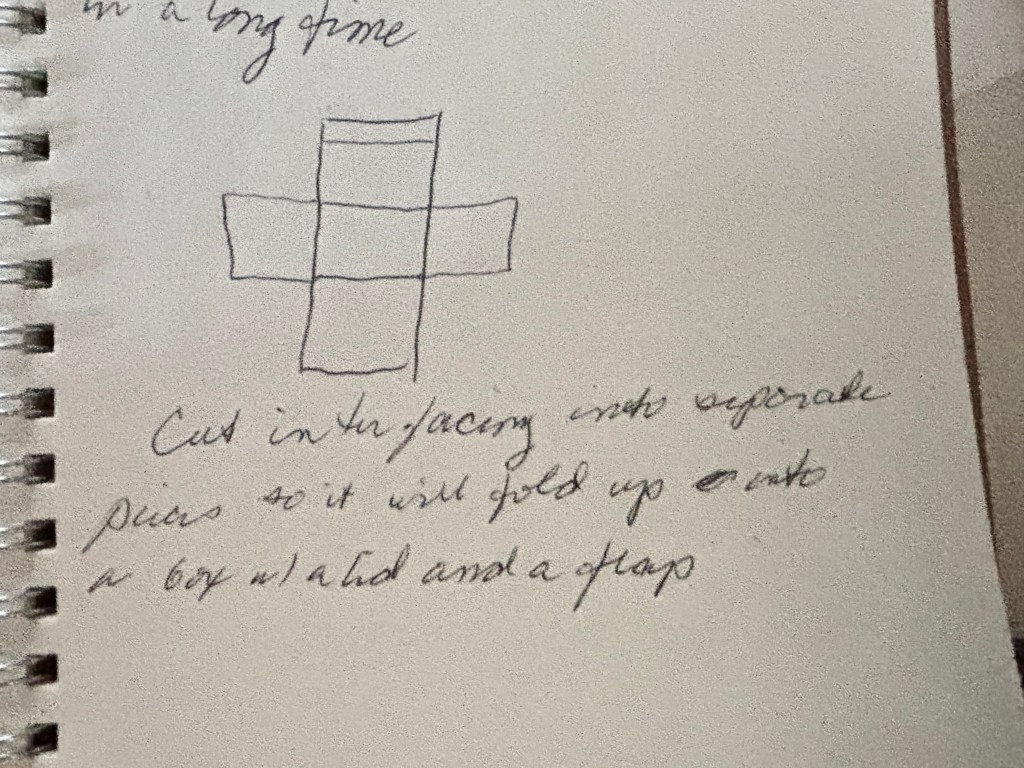 in a long time
Cut interfacing into separate
pieces so it will fold up into
a box w/ a lid and a flap